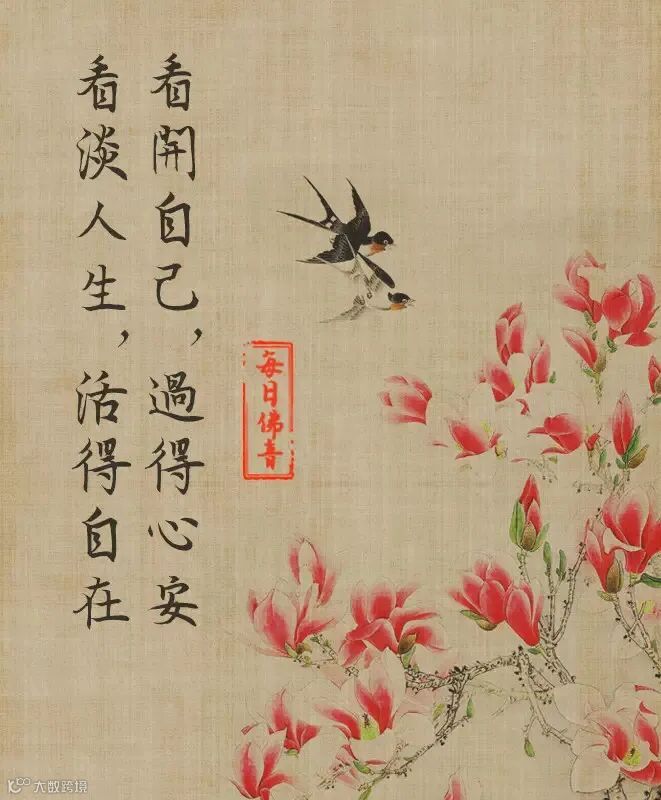 看開自己，過得心安
看淡人生，活得自在
每日佛音
大数跨境